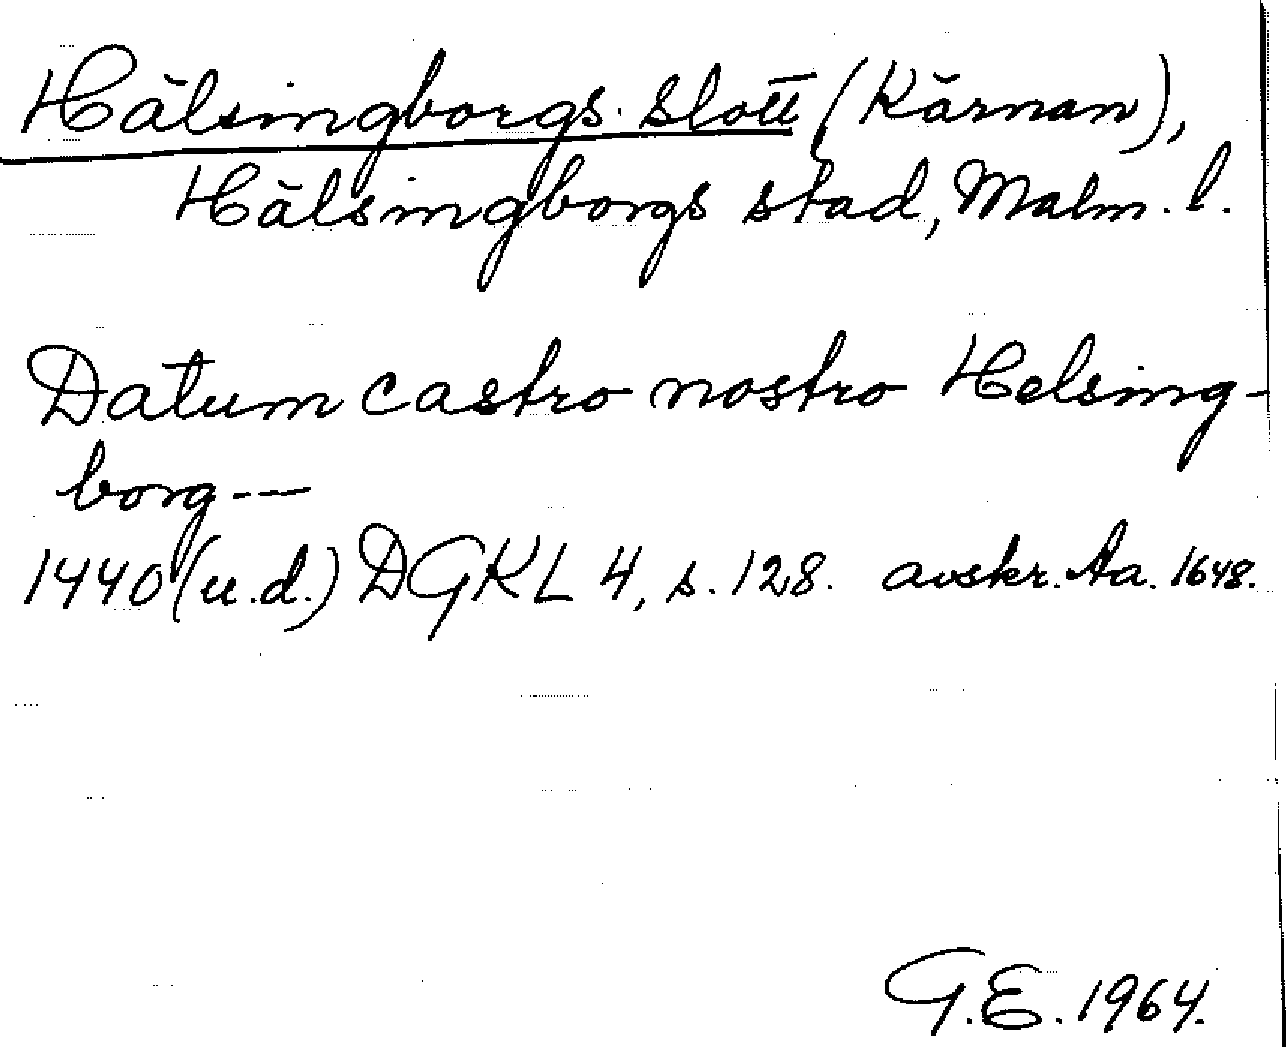 Hälsingborgs slott (Kärnan),
Hälsingborgs stad, Malm. l.
Datum castro nostro Helsing-
borg ---
1440 (u.d.) DGKL 4, s. 128. avskr. Aa. 1648.
G.E. 1964.